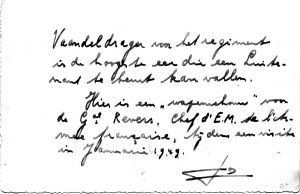 Vaandeldrager voor het regiment
is de hoogste eer die een Luite-
nant te beurt kan vallen.
Hier is een "wapenschouw" voor
de Gal Revers, Chef d'E.M. de l'Ar-
mée française, tijdens een visite
in Januari 1949.